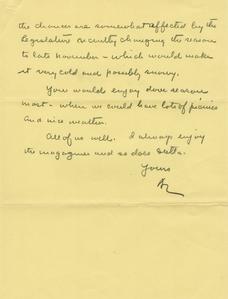 the chances are somewhat affected by the
Legislative recently changing the season
to late November - which would make
it very cold and possibly snowy.
You would enjoy dove season
most - when we could have lots of picnics
and nice weather.
All of us well. I always enjoy
the magazines and so does
Yours